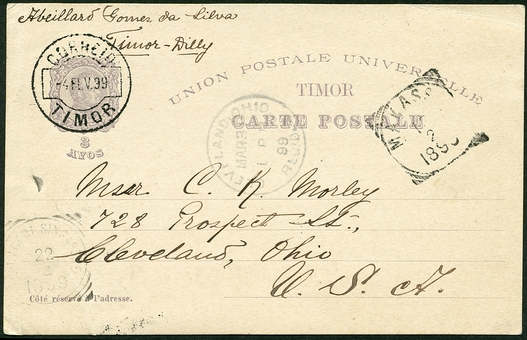 Abeillard Gomes da Silva
Timor-Dilly
CORREIO
4 FEV.99
TIMOR
UNION POSTALE UNIVERSELLE
TIMOR
CARTE POSTALE
3
AVOS
CLEVELAND, OHIO
MAR 3
1 P
99
REC'D
MA ASS
2
1899
Messr C. K. Morley
728 Prospect St.,
Cleveland, Ohio
U. S. A.
22
2
1899
Côté réservé à l'adresse.